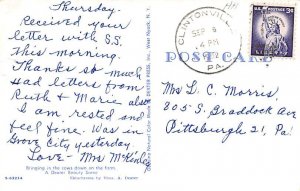 Thursday.
Received your
letter with S.S.
this morning.
Thanks so much
Had letters from
Ruth & Marie also
I am rested and
feel fine. Was in
Grove City yesterday
Love - Mrs McKinley
Bringing in the cows down on the farm
A Dexter Beauty Scene
S-63214
Ektachrome by Hoss. A. Dooer
Natural Color
DEXTER PRESS, Inc. West Nyack, N. Y.
CLINTONVILLE
SEP 6
PM
PA.
U.S. POSTAGE 3¢
POST CARD
Mrs L. C. Morris,
805 S. Braddock Ave
Pittsburgh 21, Pa!